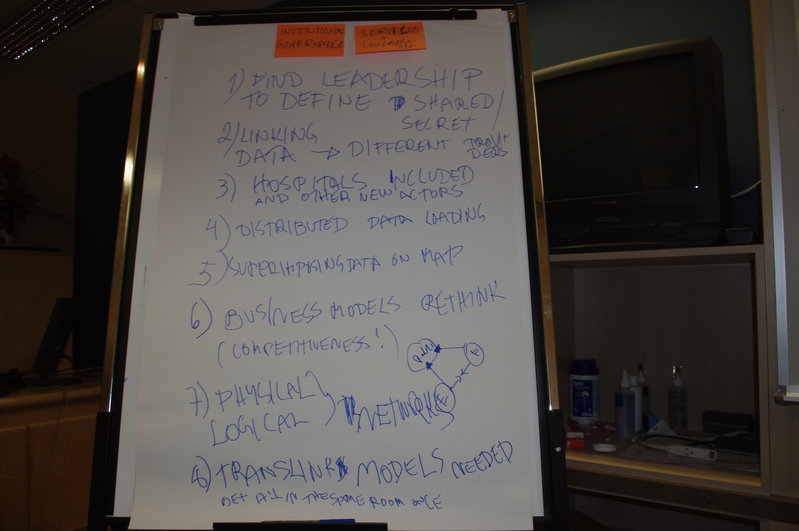 INSTITUTIONAL
GOVERNANCE
SERVICES
1) FIND LEADERSHIP
TO DEFINE SHARED/
SECRET
2) LINKING
DATA → DIFFERENT PROVI
DERS
3) HOSPITALS INCLUDED
AND OTHER NEW ACTORS
4) DISTRIBUTED DATA LOADING
5) SUPERIMPOSING DATA ON MAP
6) BUSINESS MODELS RETHINK
(COMPETITIVENESS!)
7) PHYSICAL
LOGICAL NETWORKS
8) TRANSLINK MODELS NEEDED
GET IN THE SAME ROOM